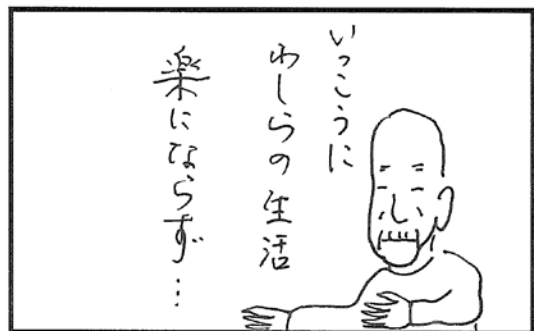 いっこうに
わしらの生活
楽にならず…